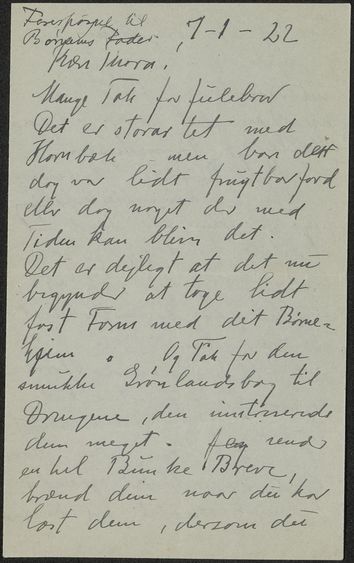 Forespørge til
Børnens Fader
7-1-22
Kære Thora.
Mange Tak for Julebrev
Det er storartet med
Hornbæk men bare det
dog var lidt frugtbar Jord
eller dog noget der med
Tiden kan blive det.
Det er dejligt at det nu
begynder at tage lidt
fast Form med dit Børne-
hjem. Og Tak for den
smukke Grønlandsbog til
Drengene, den interesserede
dem meget. Jeg sender
en hel Bunke Breve,
brænd dem naar du har
læst dem, dersom du